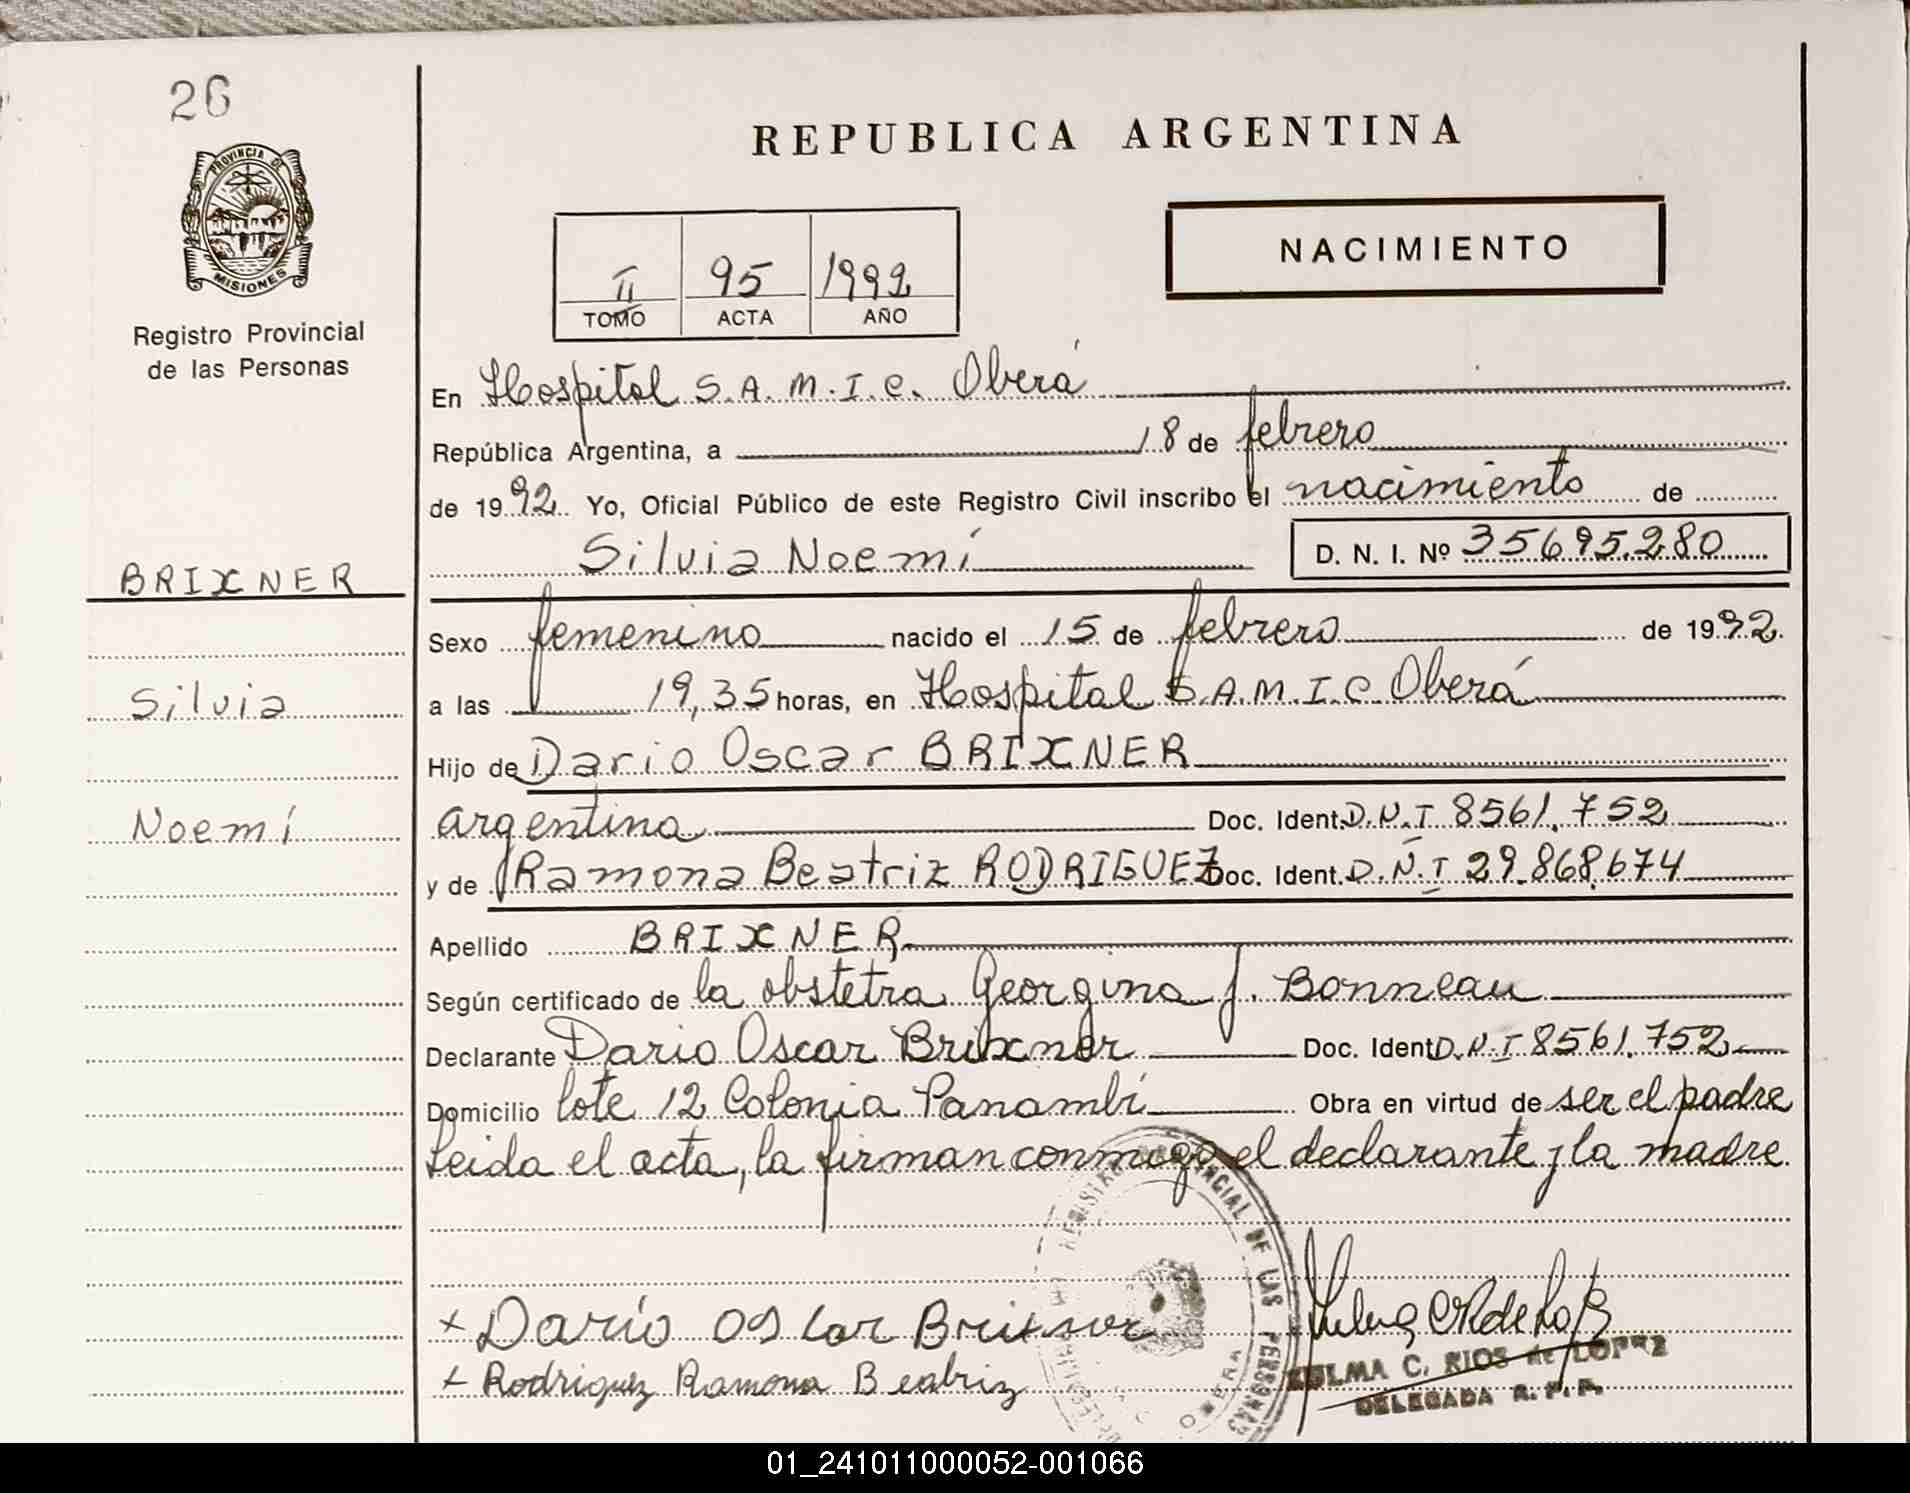 26
PROVINCIA DE
MISIONES
Registro Provincial
de las Personas
BRIXNER
Silvia
Noemí
REPUBLICA ARGENTINA
NACIMIENTO
II 95 1992
TOMO ACTA AÑO
En Hospital S.A.M.I.C. Oberá
República Argentina, a 18 de febrero
de 1992 Yo, Oficial Público de este Registro Civil inscribo el nacimiento de
Silvia Noemí D. N. I. Nº 35695.280
Sexo femenino nacido el 15 de febrero de 1992.
a las 19,35 horas, en Hospital S.A.M.I.C. Oberá
Hijo de Dario Oscar BRIXNER
argentina Doc. Ident. D.N.I 8561.752
y de Ramona Beatriz RODRIGUEZ Doc. Ident. D.N.I 29.868.674
Apellido BRIXNER
Según certificado de la obstetra Georgina J. Bonneau
Declarante Dario Oscar Brixner Doc. Ident D.N.I 8561.752
Domicilio lote 12 Colonia Panambí Obra en virtud de ser el padre
Leida el acta, la firman conmigo el declarante y la madre
REGISTRO PROVINCIAL DE LAS PERSONAS
x Darío Oscar Brixner
x Rodriguez Ramona Beatriz
ZULMA C. RIOS de LOPEZ
DELEGADA R. P. P.
01_241011000052-001066